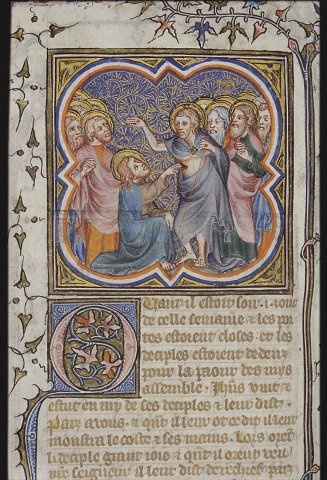 Quant il estoit soir .i. iour
de celle semaine & les por
tes estoient closes & les
deciples estoient dedenz
pour la paour des iuys
assemble . Ihus vint &
estut en my de ses deciples & leur dist .
Paiz a vous . & quil leur ot ce dit il leur
moustra le coste & ses mains . Lors orent
li deciple grant ioie & quil orent veu
nre seigneur il leur dist derechief paiz